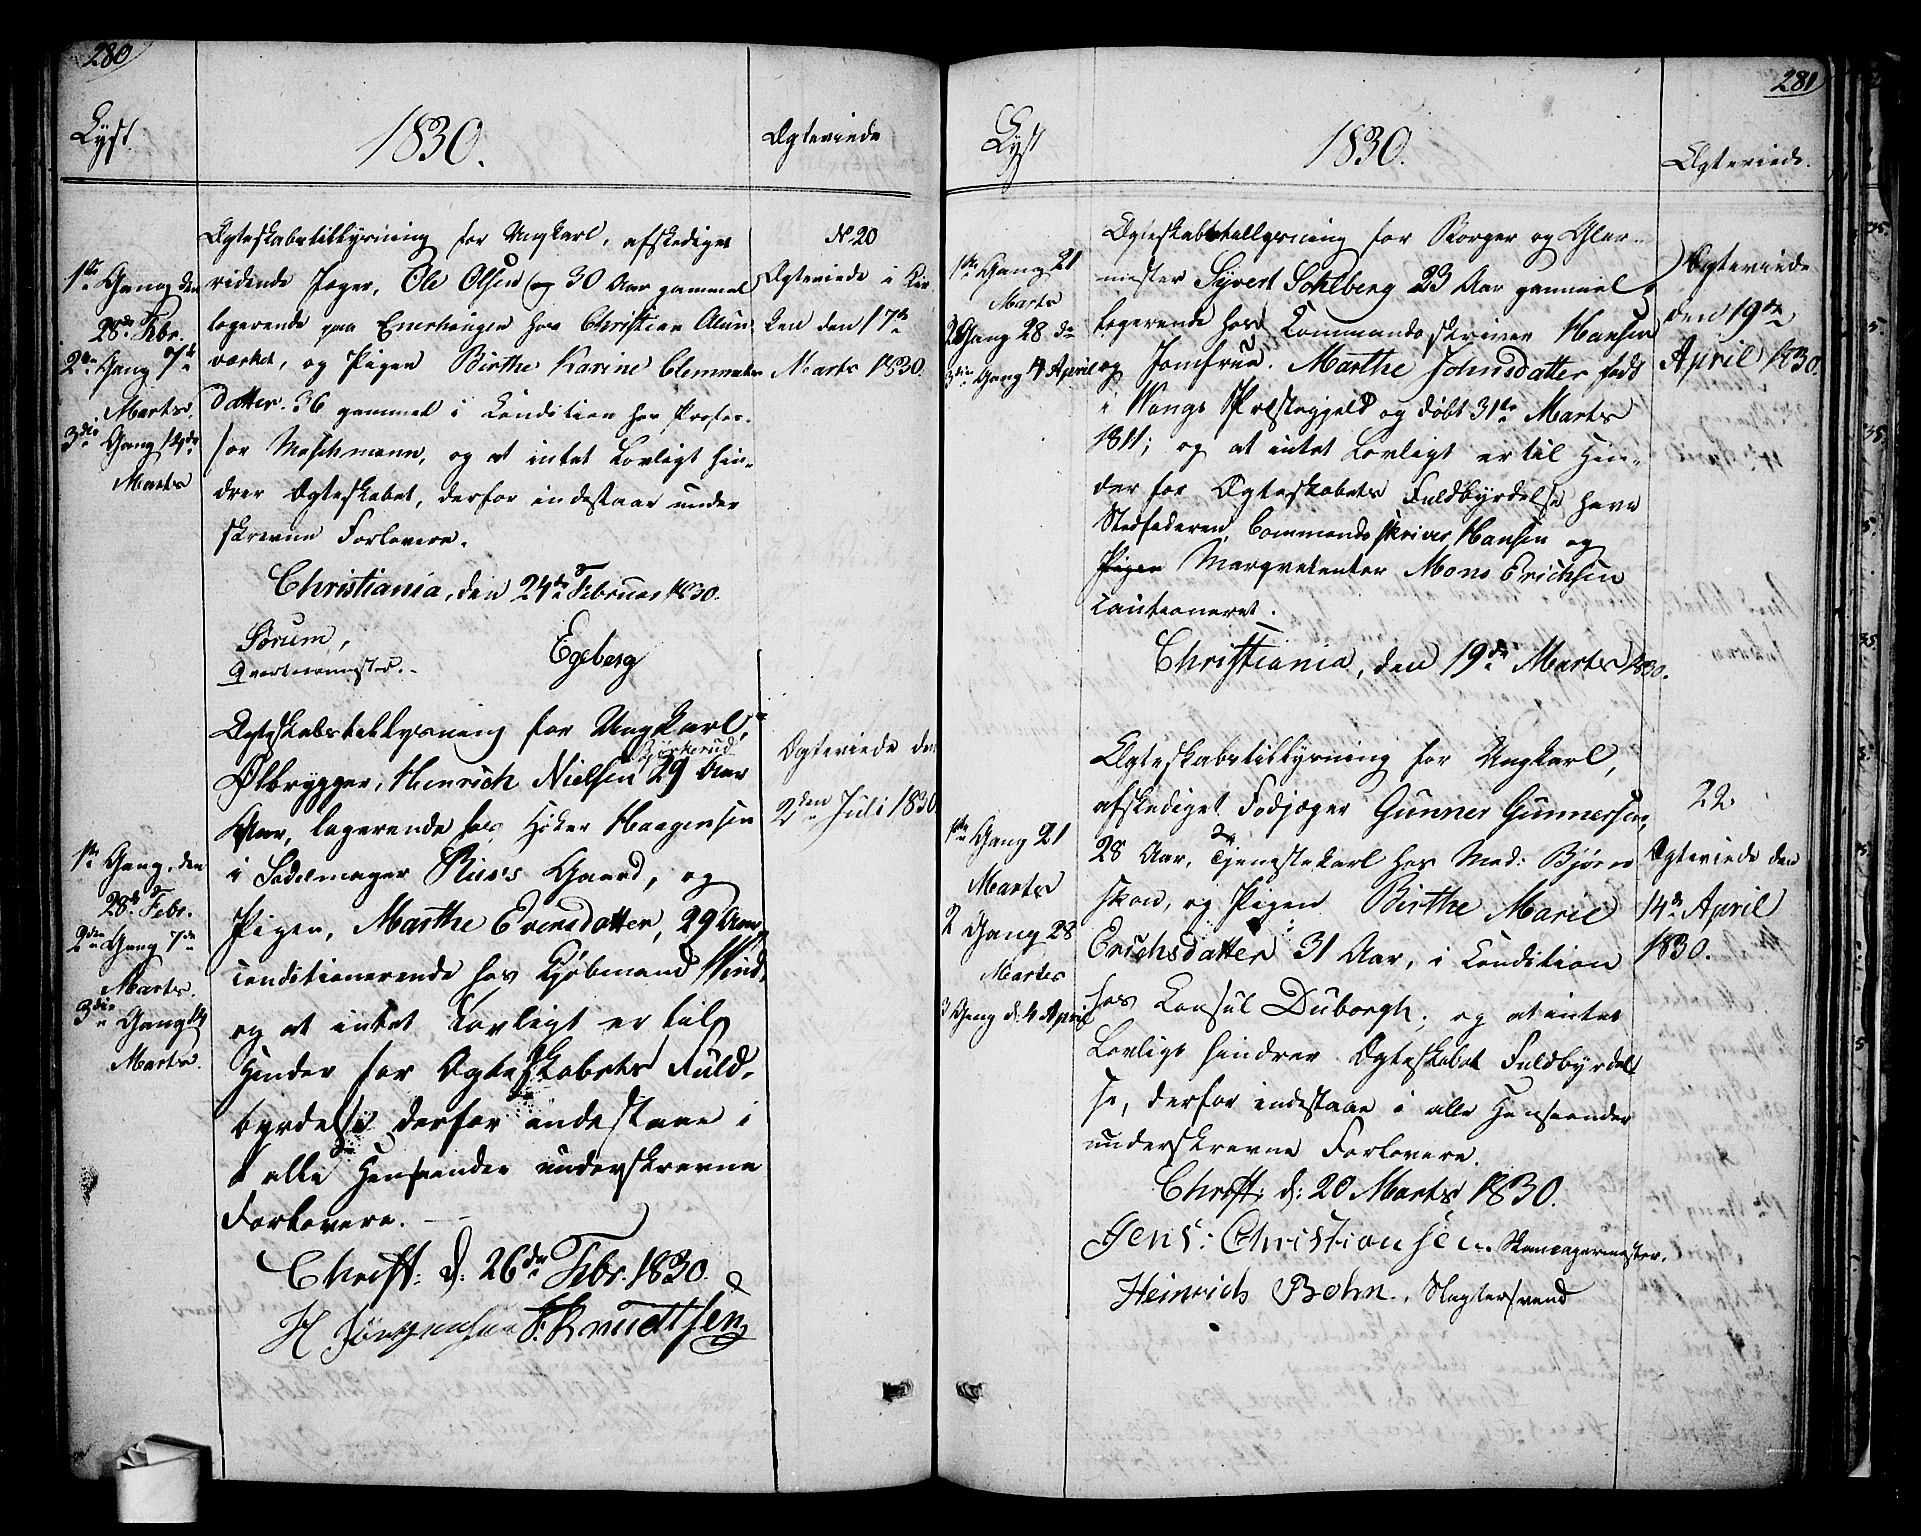 280
Lyst
1830.
Ægteviede
1ste Gang den
28de Febr.
2den Gang 7de
Marts.
3die Gang 14de
Marts
Ægteskabstillysning for Ungkarl, afskediget
ridende Jæger, Ole Olsen 30 Aar gammel
logerende paa Enerhougen hos Christian Alun
værket, og Pigen Birthe Karine Clemmets
datter. 36 gammel i Condition hos Profes-
sor Maschmann, og at intet Lovligt hin-
drer Ægteskabet, derfor indestaar under
skrevne Forlovere.
Christiania, den 24de Februar 1830.
Sørum,
Qvarteermester.
Egeberg
No 20
Ægteviede i Kir
ken den 17de
Marts 1830.
1ste Gang, den
28de Febr.
2den Gang 7de
Marts.
3die Gang 14
Marts.
Ægteskabstillysning for Ungkarl,
Bjørkerud
Ølbrygger, Henrich Nielsen 29 Aar
Aar, logerende hos Høker Haagensen
i Sadelmager Ruses Gaard, og
Pigen, Marthe Evensdatter, 29 Aar,
conditionerende hos Kjøbmand Wind,
og at intet Lovligt er til
Hinder for Ægteskabets Fuld-
byrdelse derfor indestaae i
alle Henseender underskrevne
Forlovere.
Christ: d: 26de Febr. 1830.
H Jørgensen F. Knudtsen
Ægteviede den
2den Juli 1830
281
Lyst
1830.
Ægteviede.
1ste Gang 21
Marts
2 Gang 28 de
3die Gang 4 April
Ægteskabstillysning for Borger og Glar-
mester Syvert Sohlberg 23 Aar gammel
logerende hos Commandoskriver Hansen
og Jomfrue. Marthe Johnsdatter født
i Wangs Præstegjeld og døbt 31te Marts
1811; og at intet Lovligt er til Hin-
der for Ægteskabets Fuldbyrdelse have
Stedfaderen, Commandoskriver Hansen og
Pigen Marqvetenter Mons Erichsen
cautioneret.
Christiania, den 19de Marts 1830.
Ægteviede
den 19de
April 1830.
1ste Gang 21
Marts
2 Gang 28
Martes
3 Gang d: 4 April
Ægteskabstillysning for Ungkarl,
afskediget Fodjæger Gunner Gunnersen,
28 Aar, Tjenestekarl hos Mad: Bjørn
skou, og Pigen Birthe Marie
Erichsdatter 31 Aar, i Condition
hos Consul Duborgh; og at intet
Lovligt hindrer Ægteskabet Fuldbyrdel
se, derfor indestaae i alle Henseender
underskrevne Forlovere.
Christ: d: 20 Marts 1830.
Jens: Christiansen.
Heinrich Bohn. Slagtersvend
22
Ægteviede den
14de April
1830.